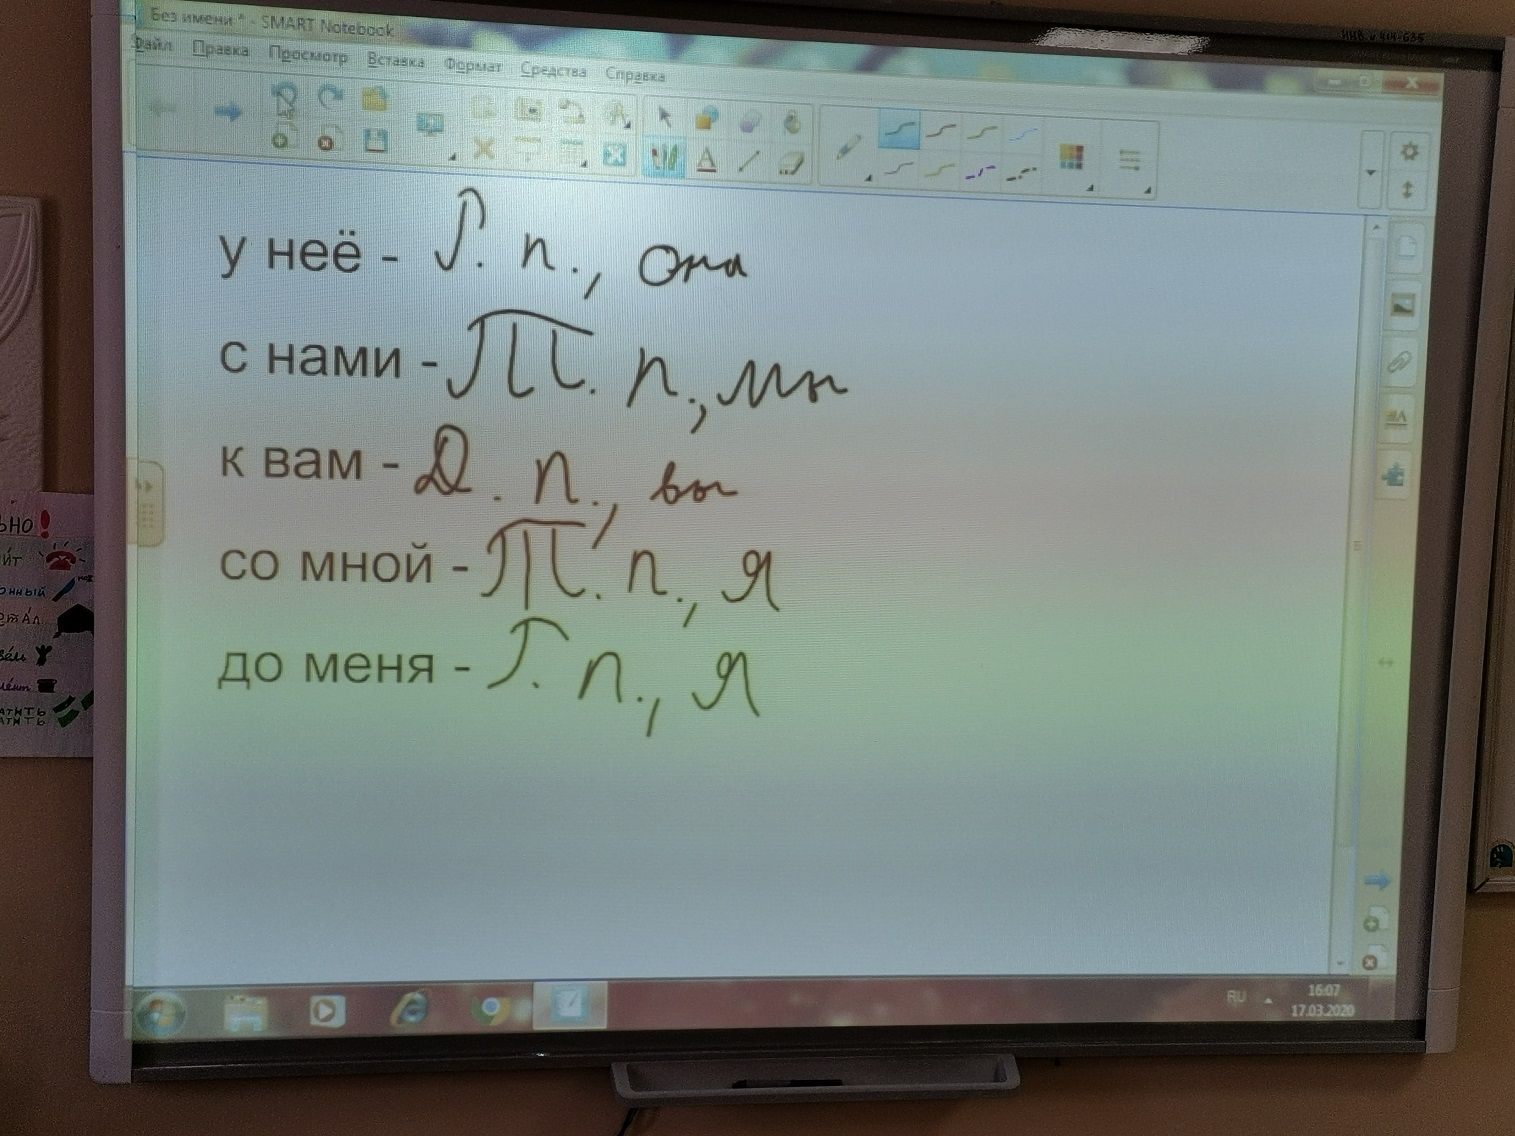 Без имени * - SMART Notebook
Файл Правка Просмотр Вставка Формат Средства Справка
у неё - Р. п., она
с нами - Т. п., мы
к вам - Д. п., вы
со мной - Т. п., я
до меня - Р. п., я
ЬНО!
RU
16:07
17.03.2020